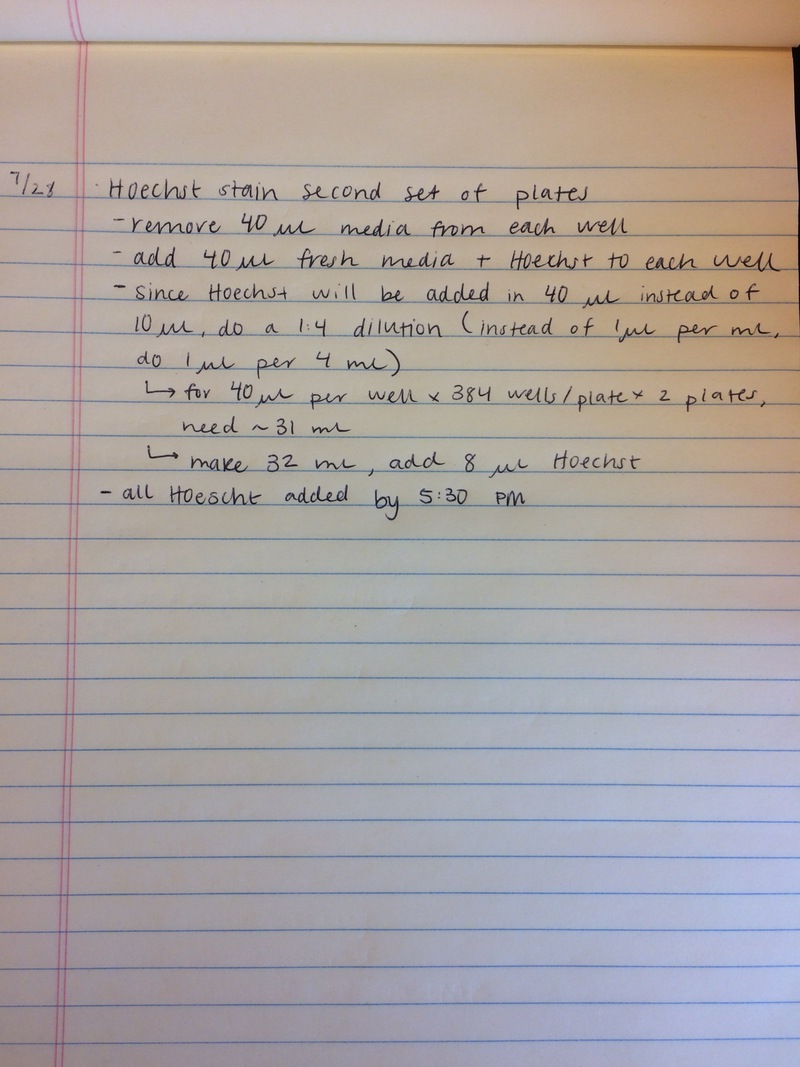 7/28 Hoechst stain second set of plates
- remove 40 µL media from each well
- add 40 µL fresh media + Hoechst to each well
- since Hoechst will be added in 40 µL instead of
10 µL, do a 1:4 dilution (instead of 1µL per mL,
do 1 µL per 4 mL)
↳ for 40µL per well × 384 wells/plate × 2 plates,
need ~31 mL
↳ make 32 mL, add 8 µL Hoechst
- all Hoescht added by 5:30 PM